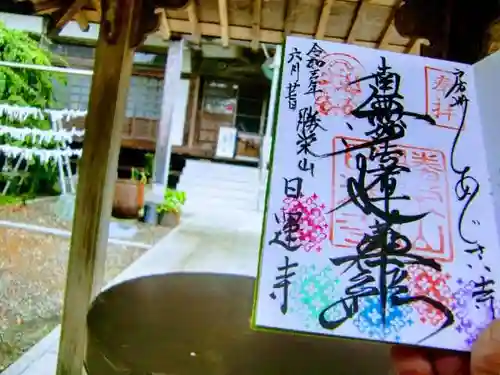 奉拝
房州あじさい寺
南無妙法蓮華経
令和三年
六月廿日
勝栄山
日運寺